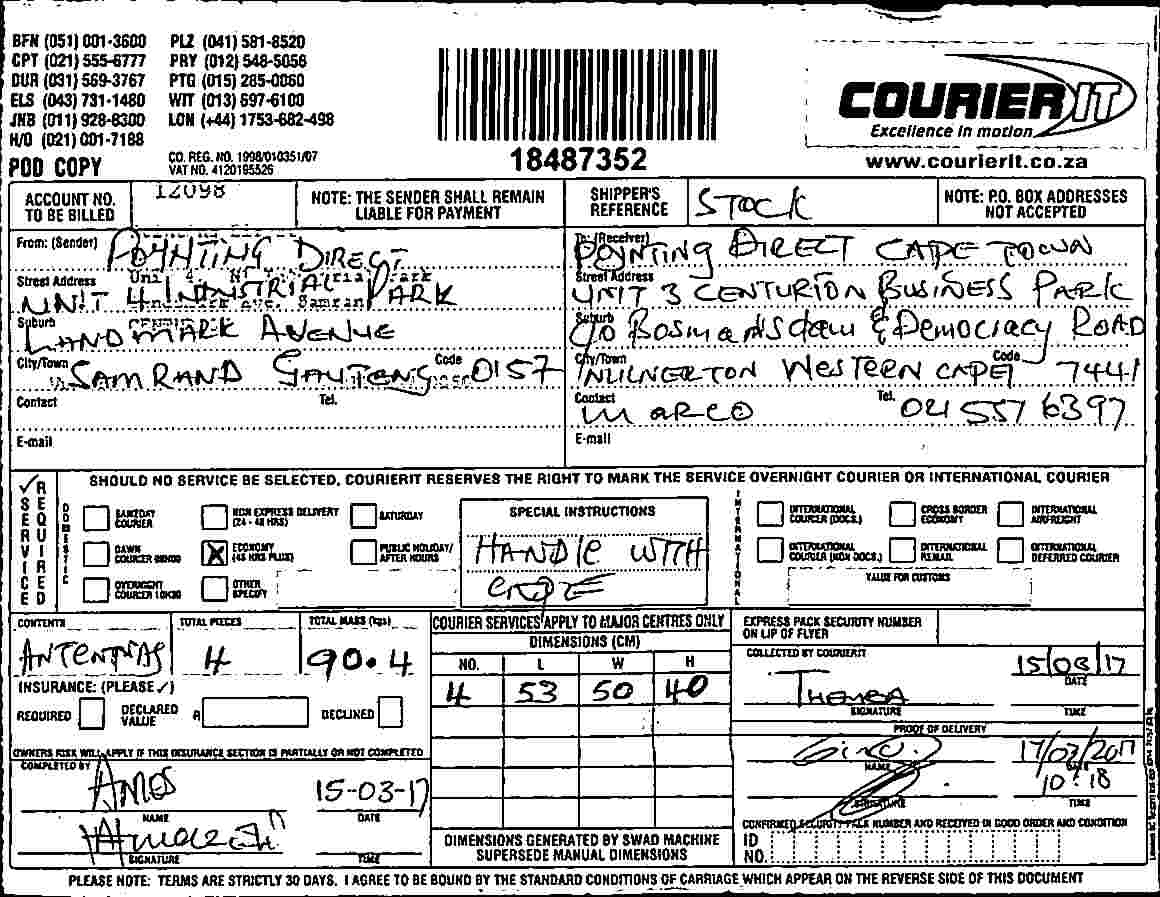 BFN (051) 001-3600 PLZ (041) 581-8520
CPT (021) 555-6777 PRY (012) 548-5056
DUR (031) 569-3767 PTG (015) 285-0060
ELS (043) 731-1480 WIT (013) 697-6100
JNB (011) 928-8300 LON (+44) 1753-682-498
H/O (021) 001-7188
POD COPY
CO. REG. NO. 1998/010351/07
VAT NO. 4120195526
18487352
COURIER IT
Excellence in motion
www.courierit.co.za
ACCOUNT NO. TO BE BILLED 12098
NOTE: THE SENDER SHALL REMAIN LIABLE FOR PAYMENT
SHIPPER'S REFERENCE STOCK
NOTE: P.O. BOX ADDRESSES NOT ACCEPTED
From: (Sender) POYNTING DIRECT
Street Address UNIT 4 INDUSTRIAL PARK
Suburb LANDMARK AVENUE
City/Town SAMRAND GAUTENG Code 0157
Contact Tel.
E-mail
To: (Receiver) POYNTING DIRECT CAPE TOWN
Street Address UNIT 3 CENTURION BUSINESS PARK
Suburb C/O Bosmansdam & Democracy ROAD
City/Town MILNERTON WESTERN CAPE Code 7441
Contact MARCO Tel. 021 557 6397
E-mail
SERVICE REQUIRED
SHOULD NO SERVICE BE SELECTED, COURIERIT RESERVES THE RIGHT TO MARK THE SERVICE OVERNIGHT COURIER OR INTERNATIONAL COURIER
DOMESTIC
SAMEDAY COURIER
NON EXPRESS DELIVERY (24 - 48 HRS)
SATURDAY
DAWN COURIER
ECONOMY (48 HRS PLUS)
PUBLIC HOLIDAY/ AFTER HOURS
OVERNIGHT COURIER 10H30
OTHER SPECIFY
SPECIAL INSTRUCTIONS
HANDLE WITH
CARE
INTERNATIONAL
INTERNATIONAL COURIER (DOCS.)
CROSS BORDER ECONOMY
INTERNATIONAL AIRFREIGHT
INTERNATIONAL COURIER (NON DOCS.)
INTERNATIONAL REMAIL
INTERNATIONAL DEFERRED COURIER
VALUE FOR CUSTOMS
CONTENTS ANTENNAS
TOTAL PIECES 4
TOTAL MASS (kgs) 90.4
INSURANCE: (PLEASE ✓)
REQUIRED DECLARED VALUE R DECLINED
OWNERS RISK WILL APPLY IF THIS INSURANCE SECTION IS PARTIALLY OR NOT COMPLETED
COMPLETED BY
AMOS 15-03-17
NAME DATE
SIGNATURE TIME
COURIER SERVICES APPLY TO MAJOR CENTRES ONLY
DIMENSIONS (CM)
NO. L W H
4 53 50 40
DIMENSIONS GENERATED BY SWAD MACHINE
SUPERSEDE MANUAL DIMENSIONS
EXPRESS PACK SECURITY NUMBER ON LIP OF FLYER
COLLECTED BY COURIERIT
THEMBA 15/03/17
SIGNATURE DATE
TIME
PROOF OF DELIVERY
17/03/2017
NAME DATE
10:18
SIGNATURE TIME
CONFIRMED SECURITY PACK NUMBER AND RECEIVED IN GOOD ORDER AND CONDITION
ID NO.
PLEASE NOTE: TERMS ARE STRICTLY 30 DAYS. I AGREE TO BE BOUND BY THE STANDARD CONDITIONS OF CARRIAGE WHICH APPEAR ON THE REVERSE SIDE OF THIS DOCUMENT